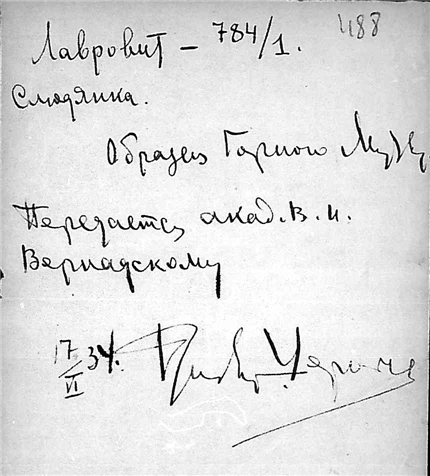 488
Лавровит – 784/1.
Слюдянка.
Образец Горного Музея
Передается акад. В. И.
Вернадскому
17/VI 34.